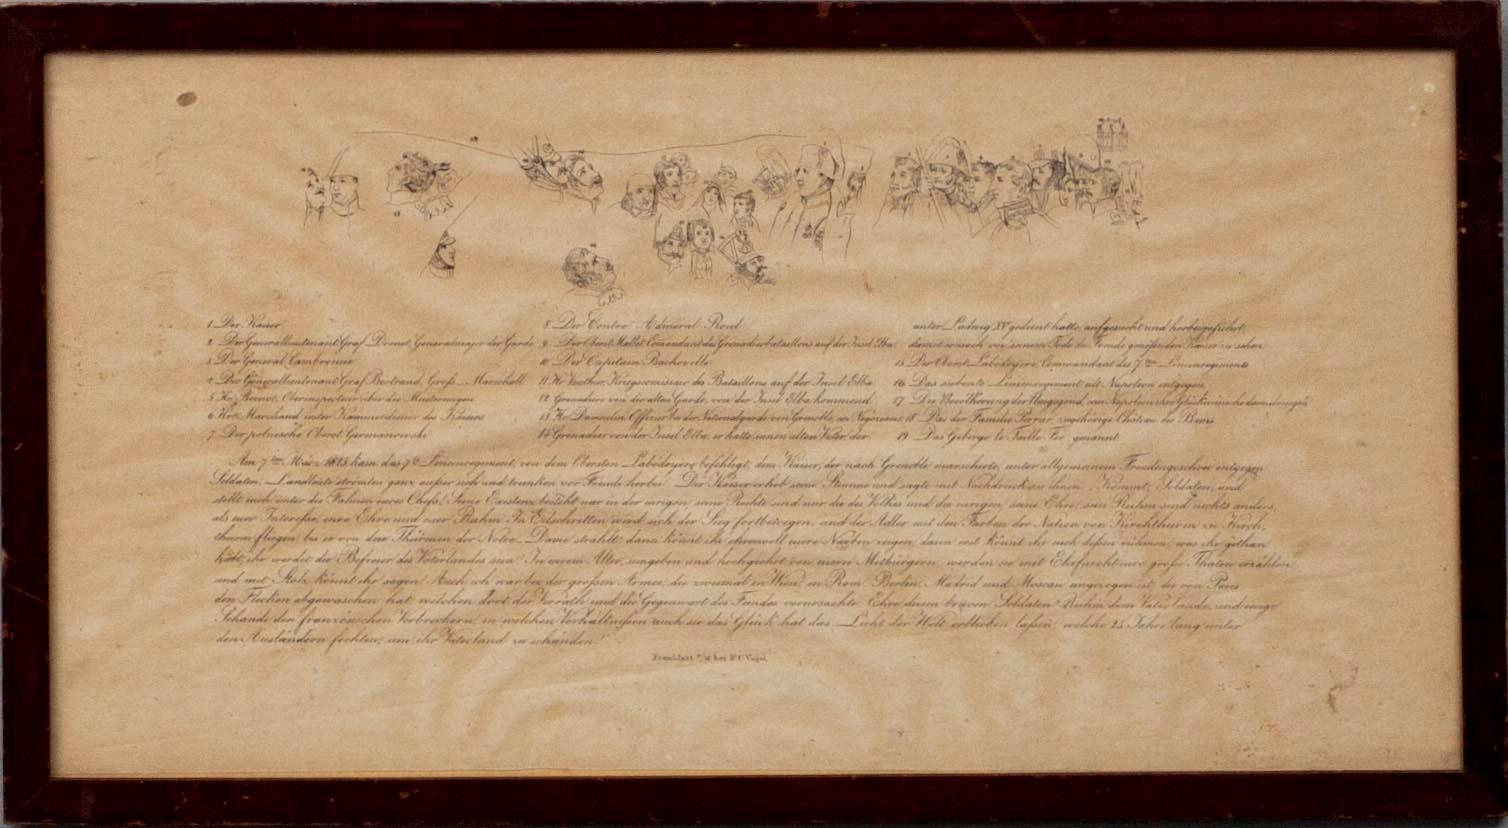 1 Der Kaiser
2 Der Generallieutenant Graf Drouot, Generalmajor der Garde
3 Der General Cambronne
4 Der Generallieutenant Graf Bertrand, Groß-Marschall
5 Hr.
6 Hr. Marchand, erster Kammerdiener des Kaisers
7 Der polnische Oberst Germanowski
8 Der Contre-Admiral
9 Der Oberst Mallet Comandant des Grenadierbataillons auf der Insel Elba
10 Der Capitain
11 Hr. Kriegscomissair des Bataillons auf der Insel Elba
12 Grenadiere von der alten Garde, von der Insel Elba kommend
13 Hr. Dumoulin, Offizier bei der Nationalgarde von Grenoble,
14 Grenadier von der Insel Elba, er hatte seinen alten Vater, der
unter Ludwig XV gedient hatte, aufgesucht und herbeigeführt,
damit er noch vor seinem Tode die Freude genieße, den Kaiser zu sehen
15 Der Oberst Labédoyere, Commandant des 7ten Linienregiments
16 Das siebente Linienregiment eilt Napoleon entgegen
17 Die Bevölkerung der Umgegend,
18 Das der Familie Perier zugehörige Château
19 Das Gebirge genannt
Am 7ten März 1815 kam das 7te Linienregiment, von dem Obersten Labédoyere befehligt, dem Kaiser, der nach Grenoble marschirte, unter allgemeinem Freudengeschrei entgegen
Soldaten, Landleute strömten ganz außer sich und trunken vor Freude herbei. Der Kaiser erhob seine Stimme und sagte mit Nachdruck zu ihnen: Kommt, Soldaten, und
stellt euch unter die Fahnen eures Chefs! Seine Existenz besteht nur in der eurigen; seine Rechte sind nur die des Volkes und die eurigen; seine Ehre, sein Ruhm sind nichts anders,
als euer Interesse, eure Ehre und euer Ruhm. In Eilschritten wird sich der Sieg fortbewegen, und der Adler mit den Farben der Nation von Kirchthurm zu Kirch,
thurm fliegen, bis er von den Thürmen der Notre-Dame strahlt: dann könnt ihr ehrenvoll eure Narben zeigen, dann erst könnt ihr euch deßen rühmen, was ihr gethan
habt; ihr werdet die Befreier des Vaterlandes sein! In eurem Alter, umgeben und hochgeehrt von euren Mitbürgern, werden sie mit Ehrfurcht eure große Thaten erzählen
und mit Stolz könnt ihr sagen: Auch ich war bei der großen Armee, die zweimal in Wien, in Rom, Berlin, Madrid und Moscau eingezogen ist, die von Paris
den Flecken abgewaschen hat, welchen dort der Verrath und die Gegenwart des Feindes verursachte. Ehre diesen braven Soldaten! Ruhm dem Vaterlande, und ewige
Schande den französischen Verbrechern, in welchen Verhältnißen auch sie das Glück hat das Licht der Welt erblicken laßen, welche 25 Jahre lang unter
den Ausländern fochten, um ihr Vaterland zu schänden!
Frankfurt a/M bei P. C. Vogel.